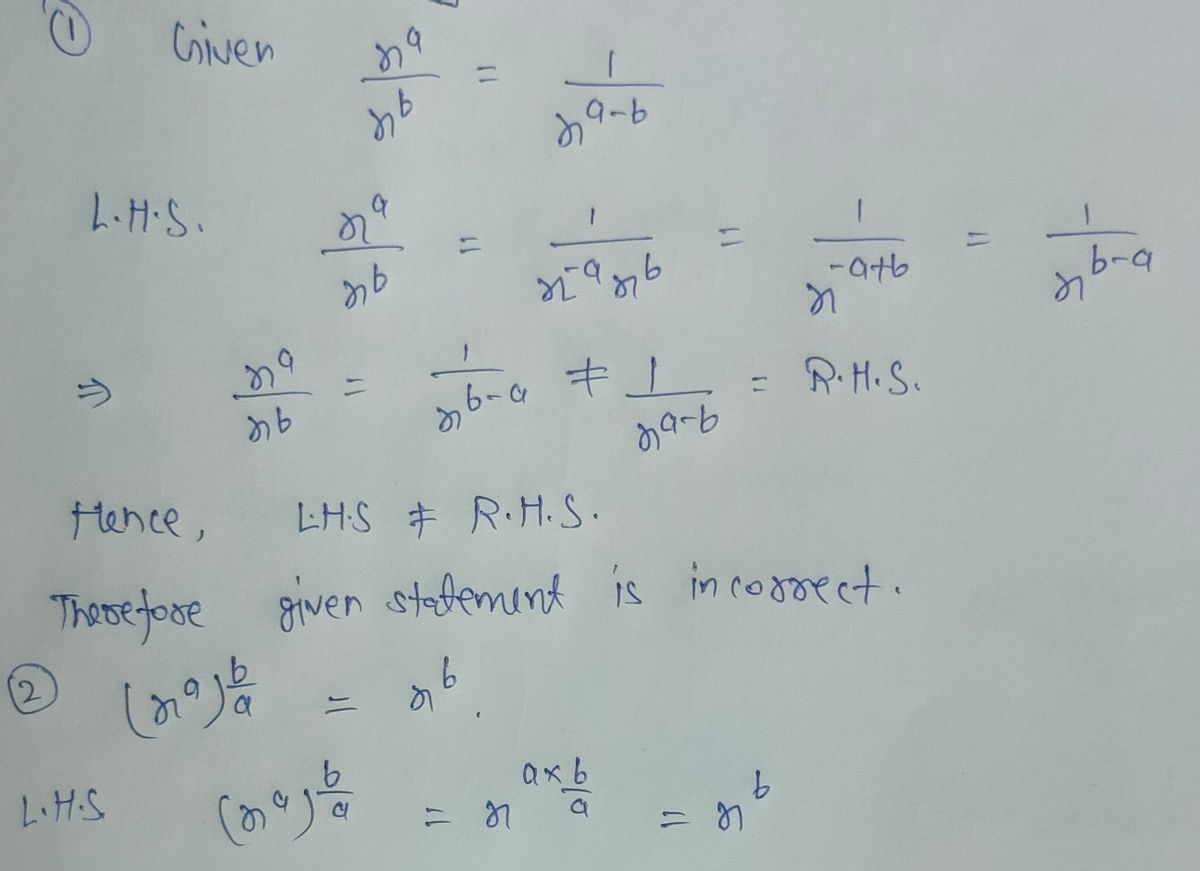 ① Given x^a/x^b = 1/x^(a-b)
L.H.S. x^a/x^b = 1/(x^-a x^b) = 1/x^(-a+b) = 1/x^(b-a)
⇒ x^a/x^b = 1/x^(b-a) ≠ 1/x^(a-b) = R.H.S.
Hence, L.H.S ≠ R.H.S.
Therefore given statement is incorrect.
② (x^a)^(b/a) = x^b.
L.H.S (x^a)^(b/a) = x^(a×b/a) = x^b